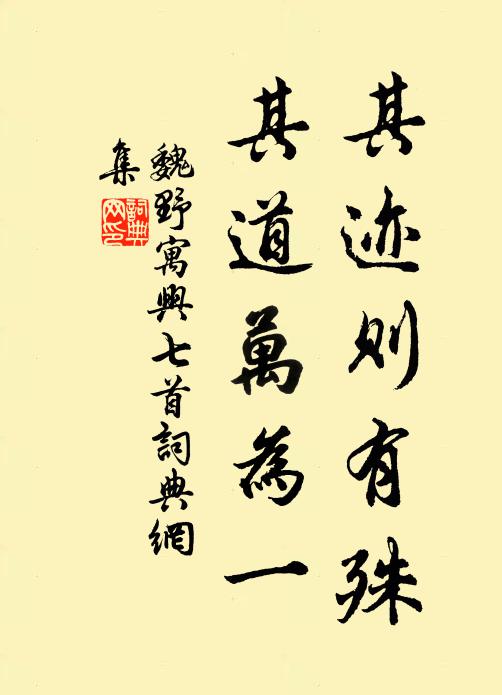 其迹則有殊
其道萬為一
魏野寓興七首詞典網
集
詞典網印